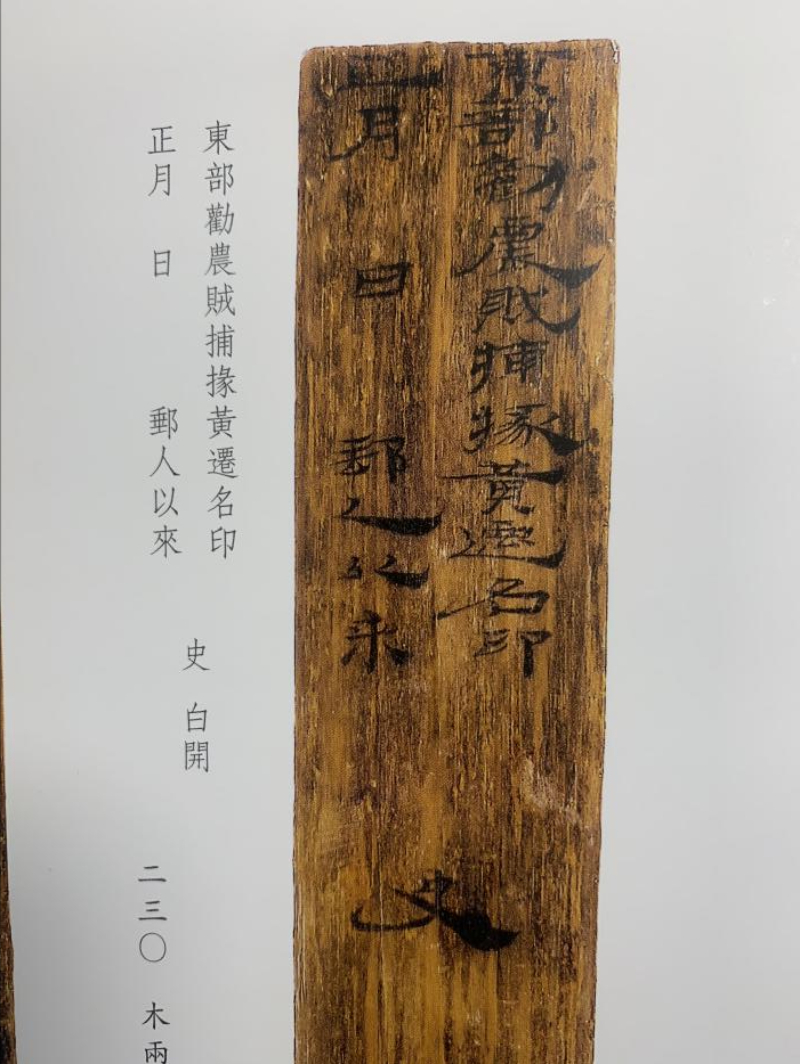 東部勸農賊捕掾黃遷名印
正月 日 郵人以來 史 白開
二三〇 木兩
東部勸農賊捕掾黃遷名印
正月 日 郵人以來
史